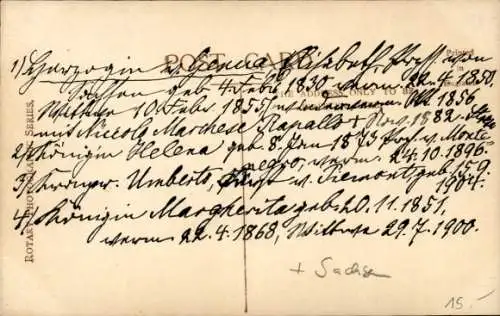 POST CARD
Printed
THE ADDRESS ONLY TO BE
ROTARY PHOTOGRAPHIC SERIES.
1) Herzogin v. Genua Elisabeth, Prss. von
Sachsen geb. 4. Febr. 1830 verm. 22.4.1850.
Wittwe 10. Febr. 1855, Okt. 1856
mit Niccolò Marchese Rapallo + Nov. 1882.
2) Königin Helena geb. 8. Jan 1873 Prss. v. Monte-
negro, verm. 24.10.1896.
3) Kronpr. Umberto, Fürst v. Piemont geb. 15.9.
1904.
4) Königin Margherita geb. 20.11.1851,
verm. 22.4.1868, Wittwe 29.7.1900.
+ Sachsen
15.-